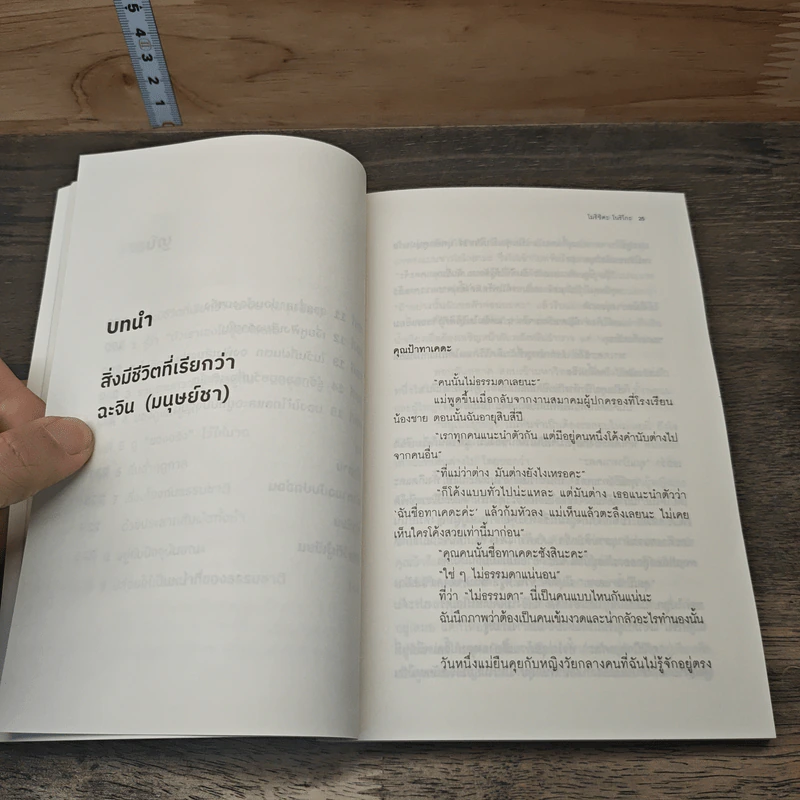 5
4
3
2
1
บทนำ
สิ่งมีชีวิตที่เรียกว่า
ฉะจิน (มนุษย์ชา)
โมริชิตะ โนริโกะ 25
คุณป้าทาเคดะ
“คนนั้นไม่ธรรมดาเลยนะ”
แม่พูดขึ้นเมื่อกลับจากงานสมาคมผู้ปกครองที่โรงเรียน
น้องชาย ตอนนั้นฉันอายุสิบสี่ปี
“เราทุกคนแนะนำตัวกัน แต่มีอยู่คนหนึ่งโค้งคำนับต่างไป
จากคนอื่น”
“ที่แม่ว่าต่าง มันต่างยังไงเหรอคะ”
“ก็โค้งแบบทั่วไปน่ะแหละ แต่มันต่าง เธอแนะนำตัวว่า
‘ฉันชื่อทาเคดะค่ะ’ แล้วก้มหัวลง แม่เห็นแล้วตะลึงเลยนะ ไม่เคย
เห็นใครโค้งสวยเท่านี้มาก่อน”
“คุณคนนั้นชื่อทาเคดะซังสินะคะ”
“ใช่ ๆ ไม่ธรรมดาแน่นอน”
ที่ว่า “ไม่ธรรมดา” นี่เป็นคนแบบไหนกันแน่นะ
ฉันนึกภาพว่าต้องเป็นคนเข้มงวดและน่ากลัวอะไรทำนองนั้น
วันหนึ่งแม่ยืนคุยกับหญิงวัยกลางคนที่ฉันไม่รู้จักอยู่ตรง